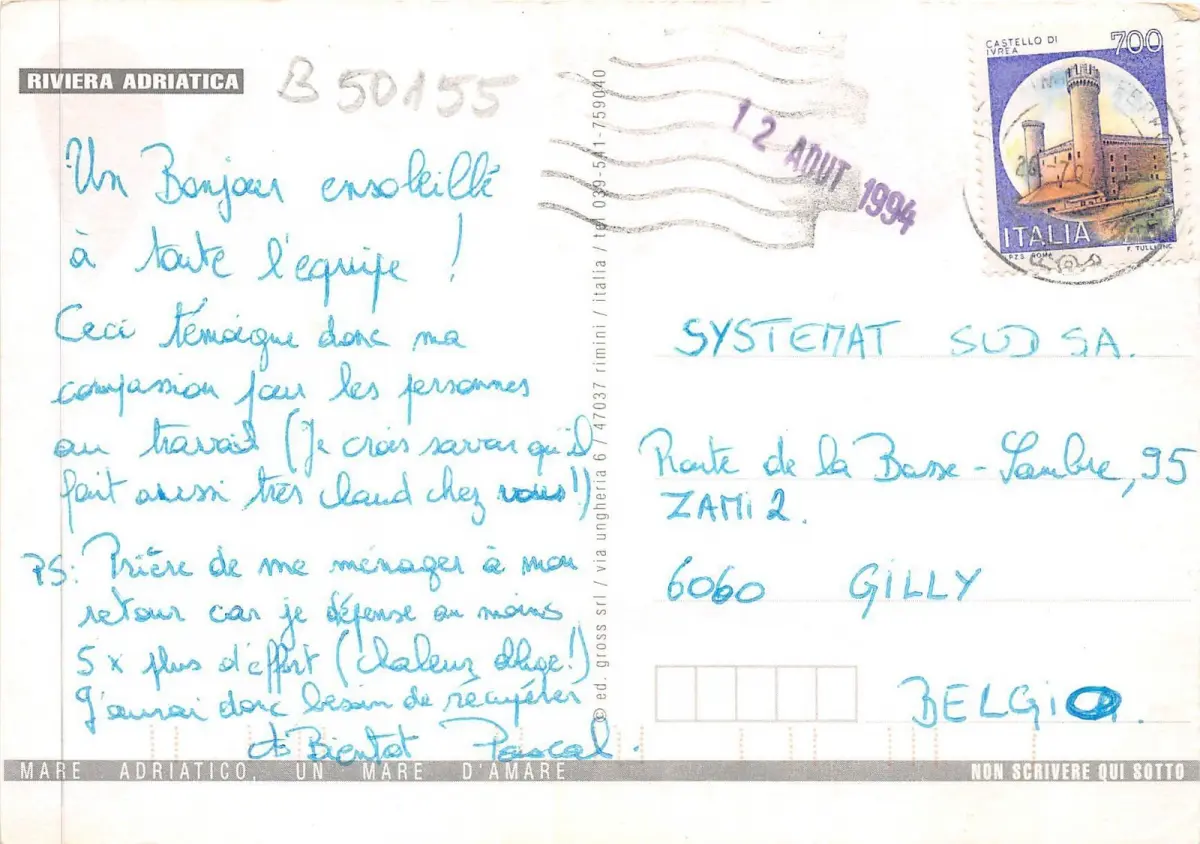 RIVIERA ADRIATICA
B 50155
Un Bonjour ensoleillé
à toute l'équipe !
Ceci témoigne donc ma
compassion pour les personnes
au travail (Je crois savoir qu'il
fait aussi très chaud chez vous !)
PS: Prière de me ménager à mon
retour car je dépense au moins
5 x plus d'effort (chaleur oblige !)
J'aurai donc besoin de récupérer
A Bientot Pascal.
MARE ADRIATICO, UN MARE D'AMARE
© ed. gross srl / via ungheria 6 / 47037 rimini / italia / tel 039-541-759040
12 AOUT 1994
CASTELLO DI
IVREA
700
ITALIA
I.P.Z.S. ROMA
SYSTEMAT SUD SA.
Route de la Basse-Sambre, 95
ZAMi 2.
6060 GILLY
BELGiO.
NON SCRIVERE QUI SOTTO